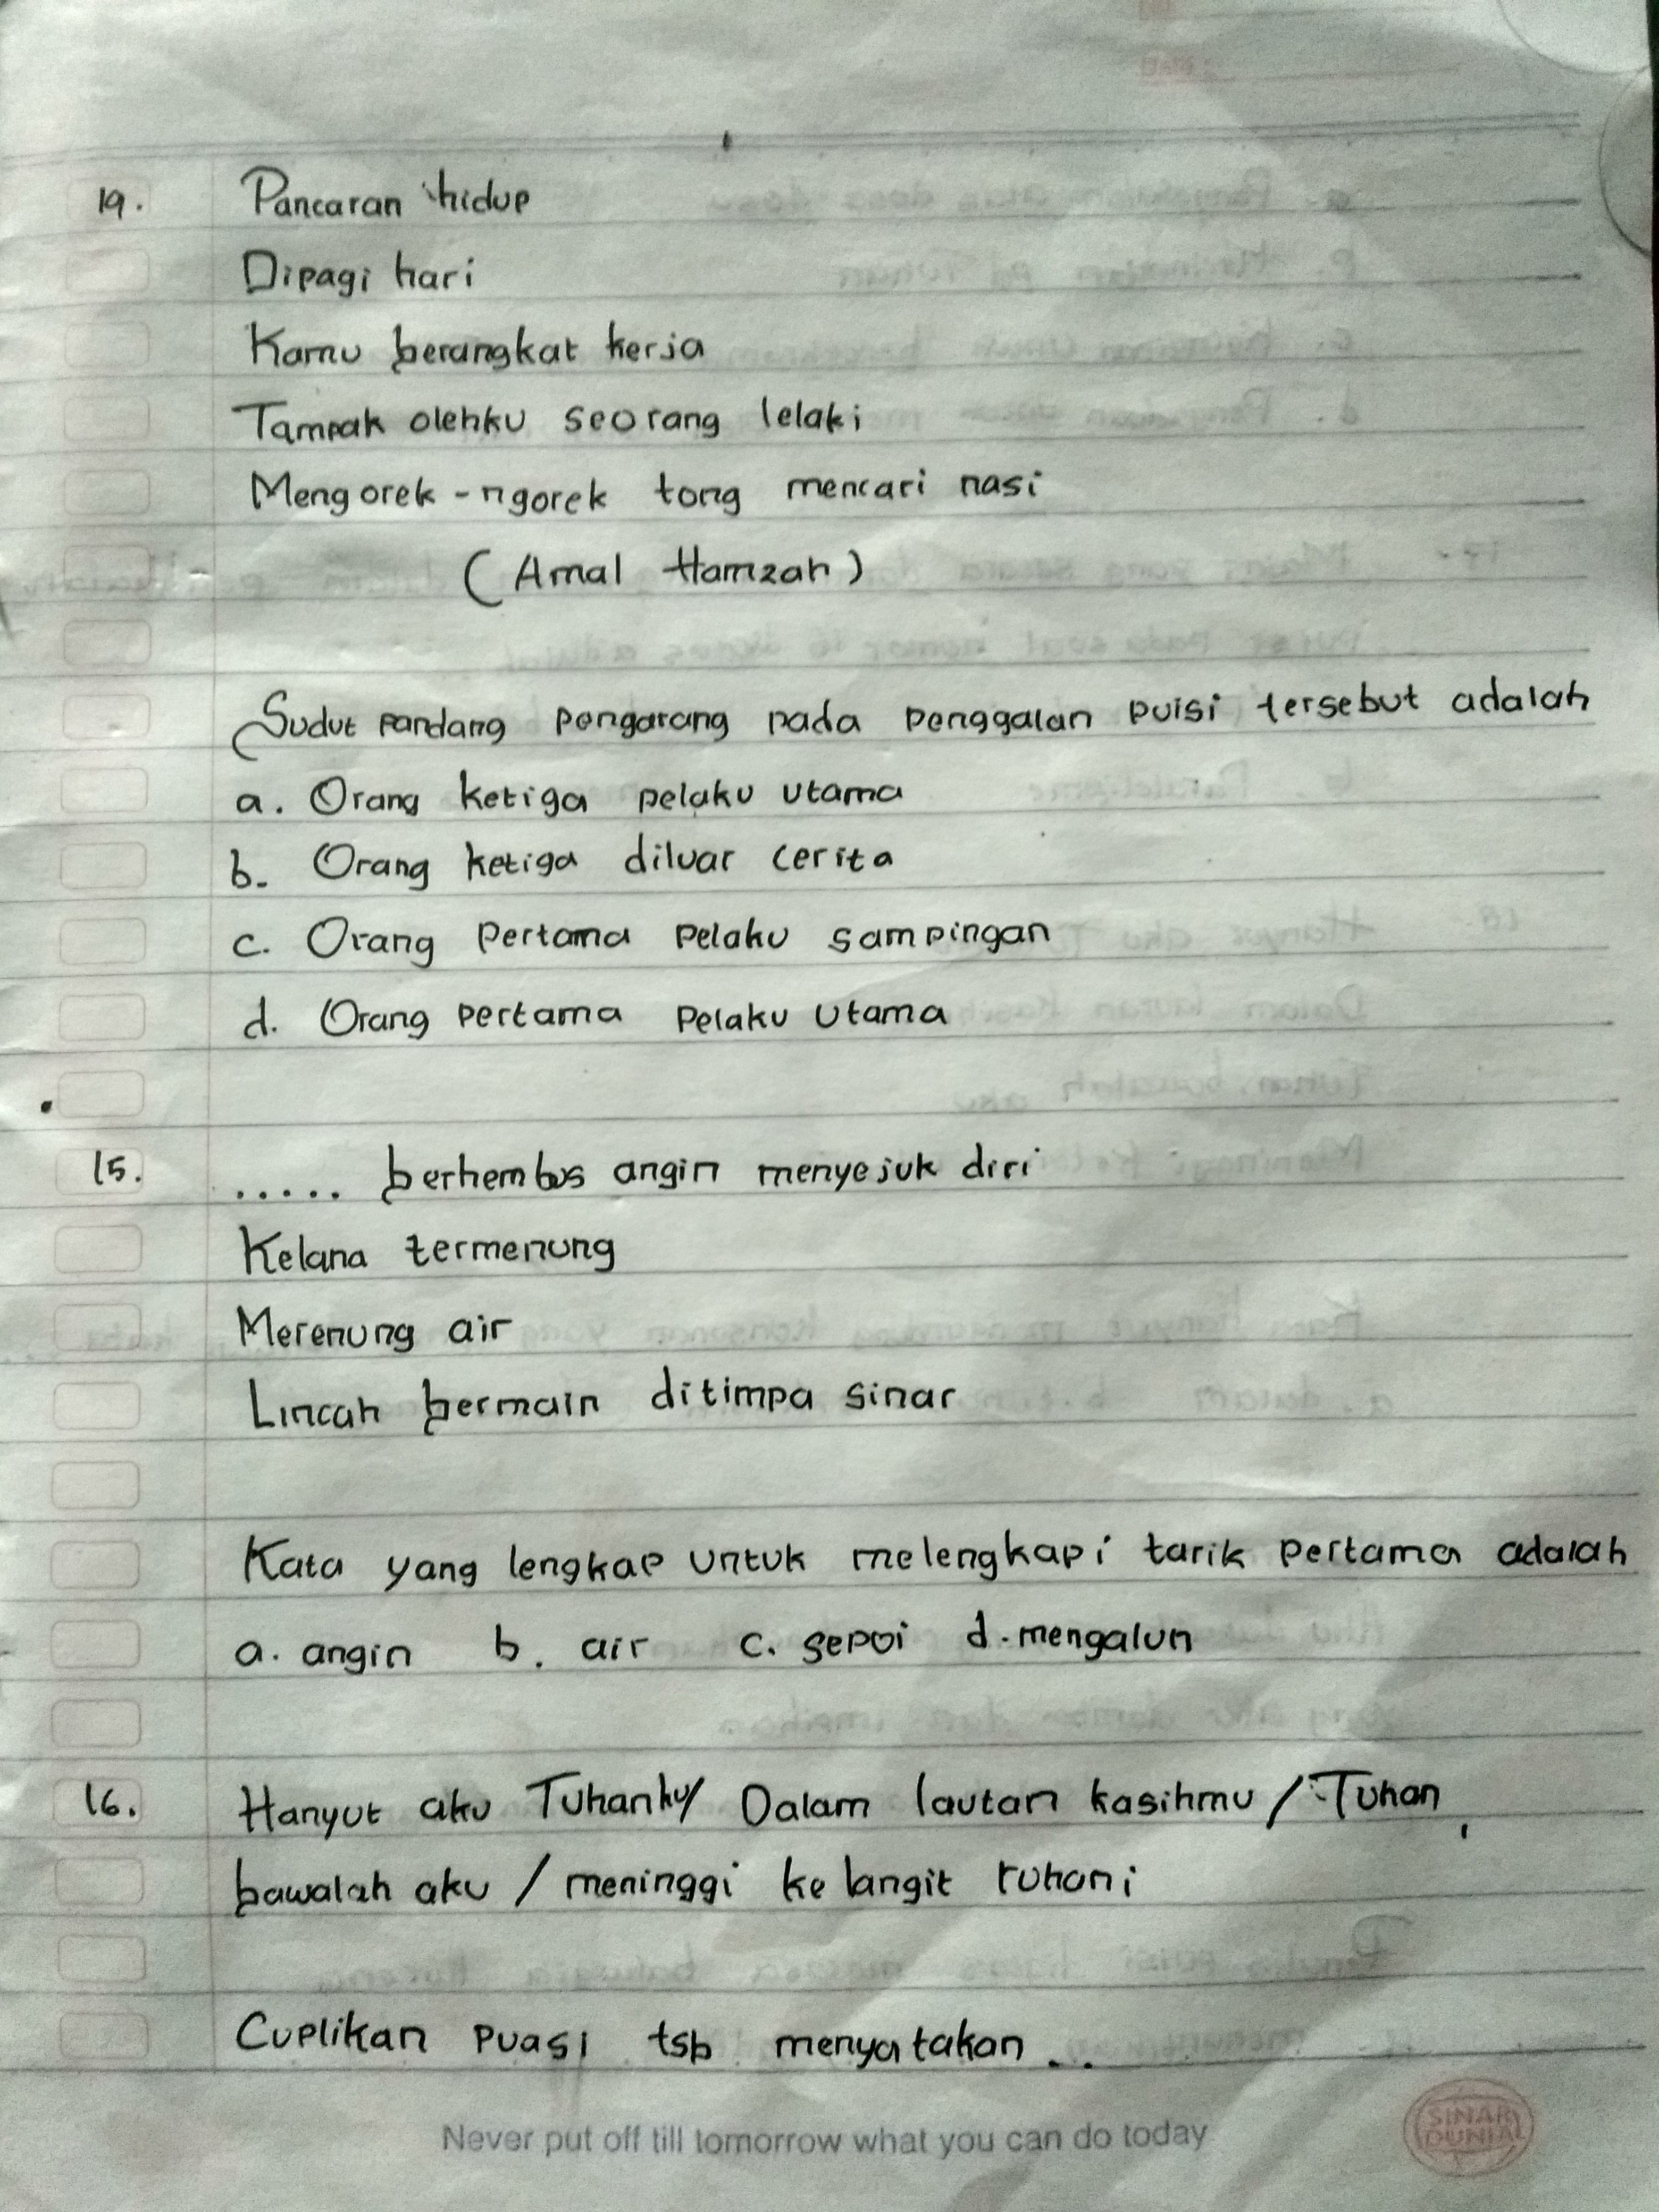 19. Pancaran hidup
Dipagi hari
Kamu berangkat kerja
Tampak olehku seorang lelaki
Mengorek-ngorek tong mencari nasi
(Amal Hamzah)
Sudut pandang pengarang pada penggalan puisi tersebut adalah
a. Orang ketiga pelaku utama
b. Orang ketiga diluar cerita
c. Orang pertama pelaku sampingan
d. Orang pertama pelaku utama
15. ..... berhembus angin menyejuk diri
Kelana termenung
Merenung air
Lincah bermain ditimpa sinar
Kata yang lengkap untuk melengkapi tarik pertama adalah
a. angin b. air c. sepoi d. mengalun
16. Hanyut aku Tuhanku/ Dalam lautan kasihmu / Tuhan,
bawalah aku / meninggi ke langit ruhani
Cuplikan puasi tsb menyatakan ..
Never put off till tomorrow what you can do today
SINAR DUNIA